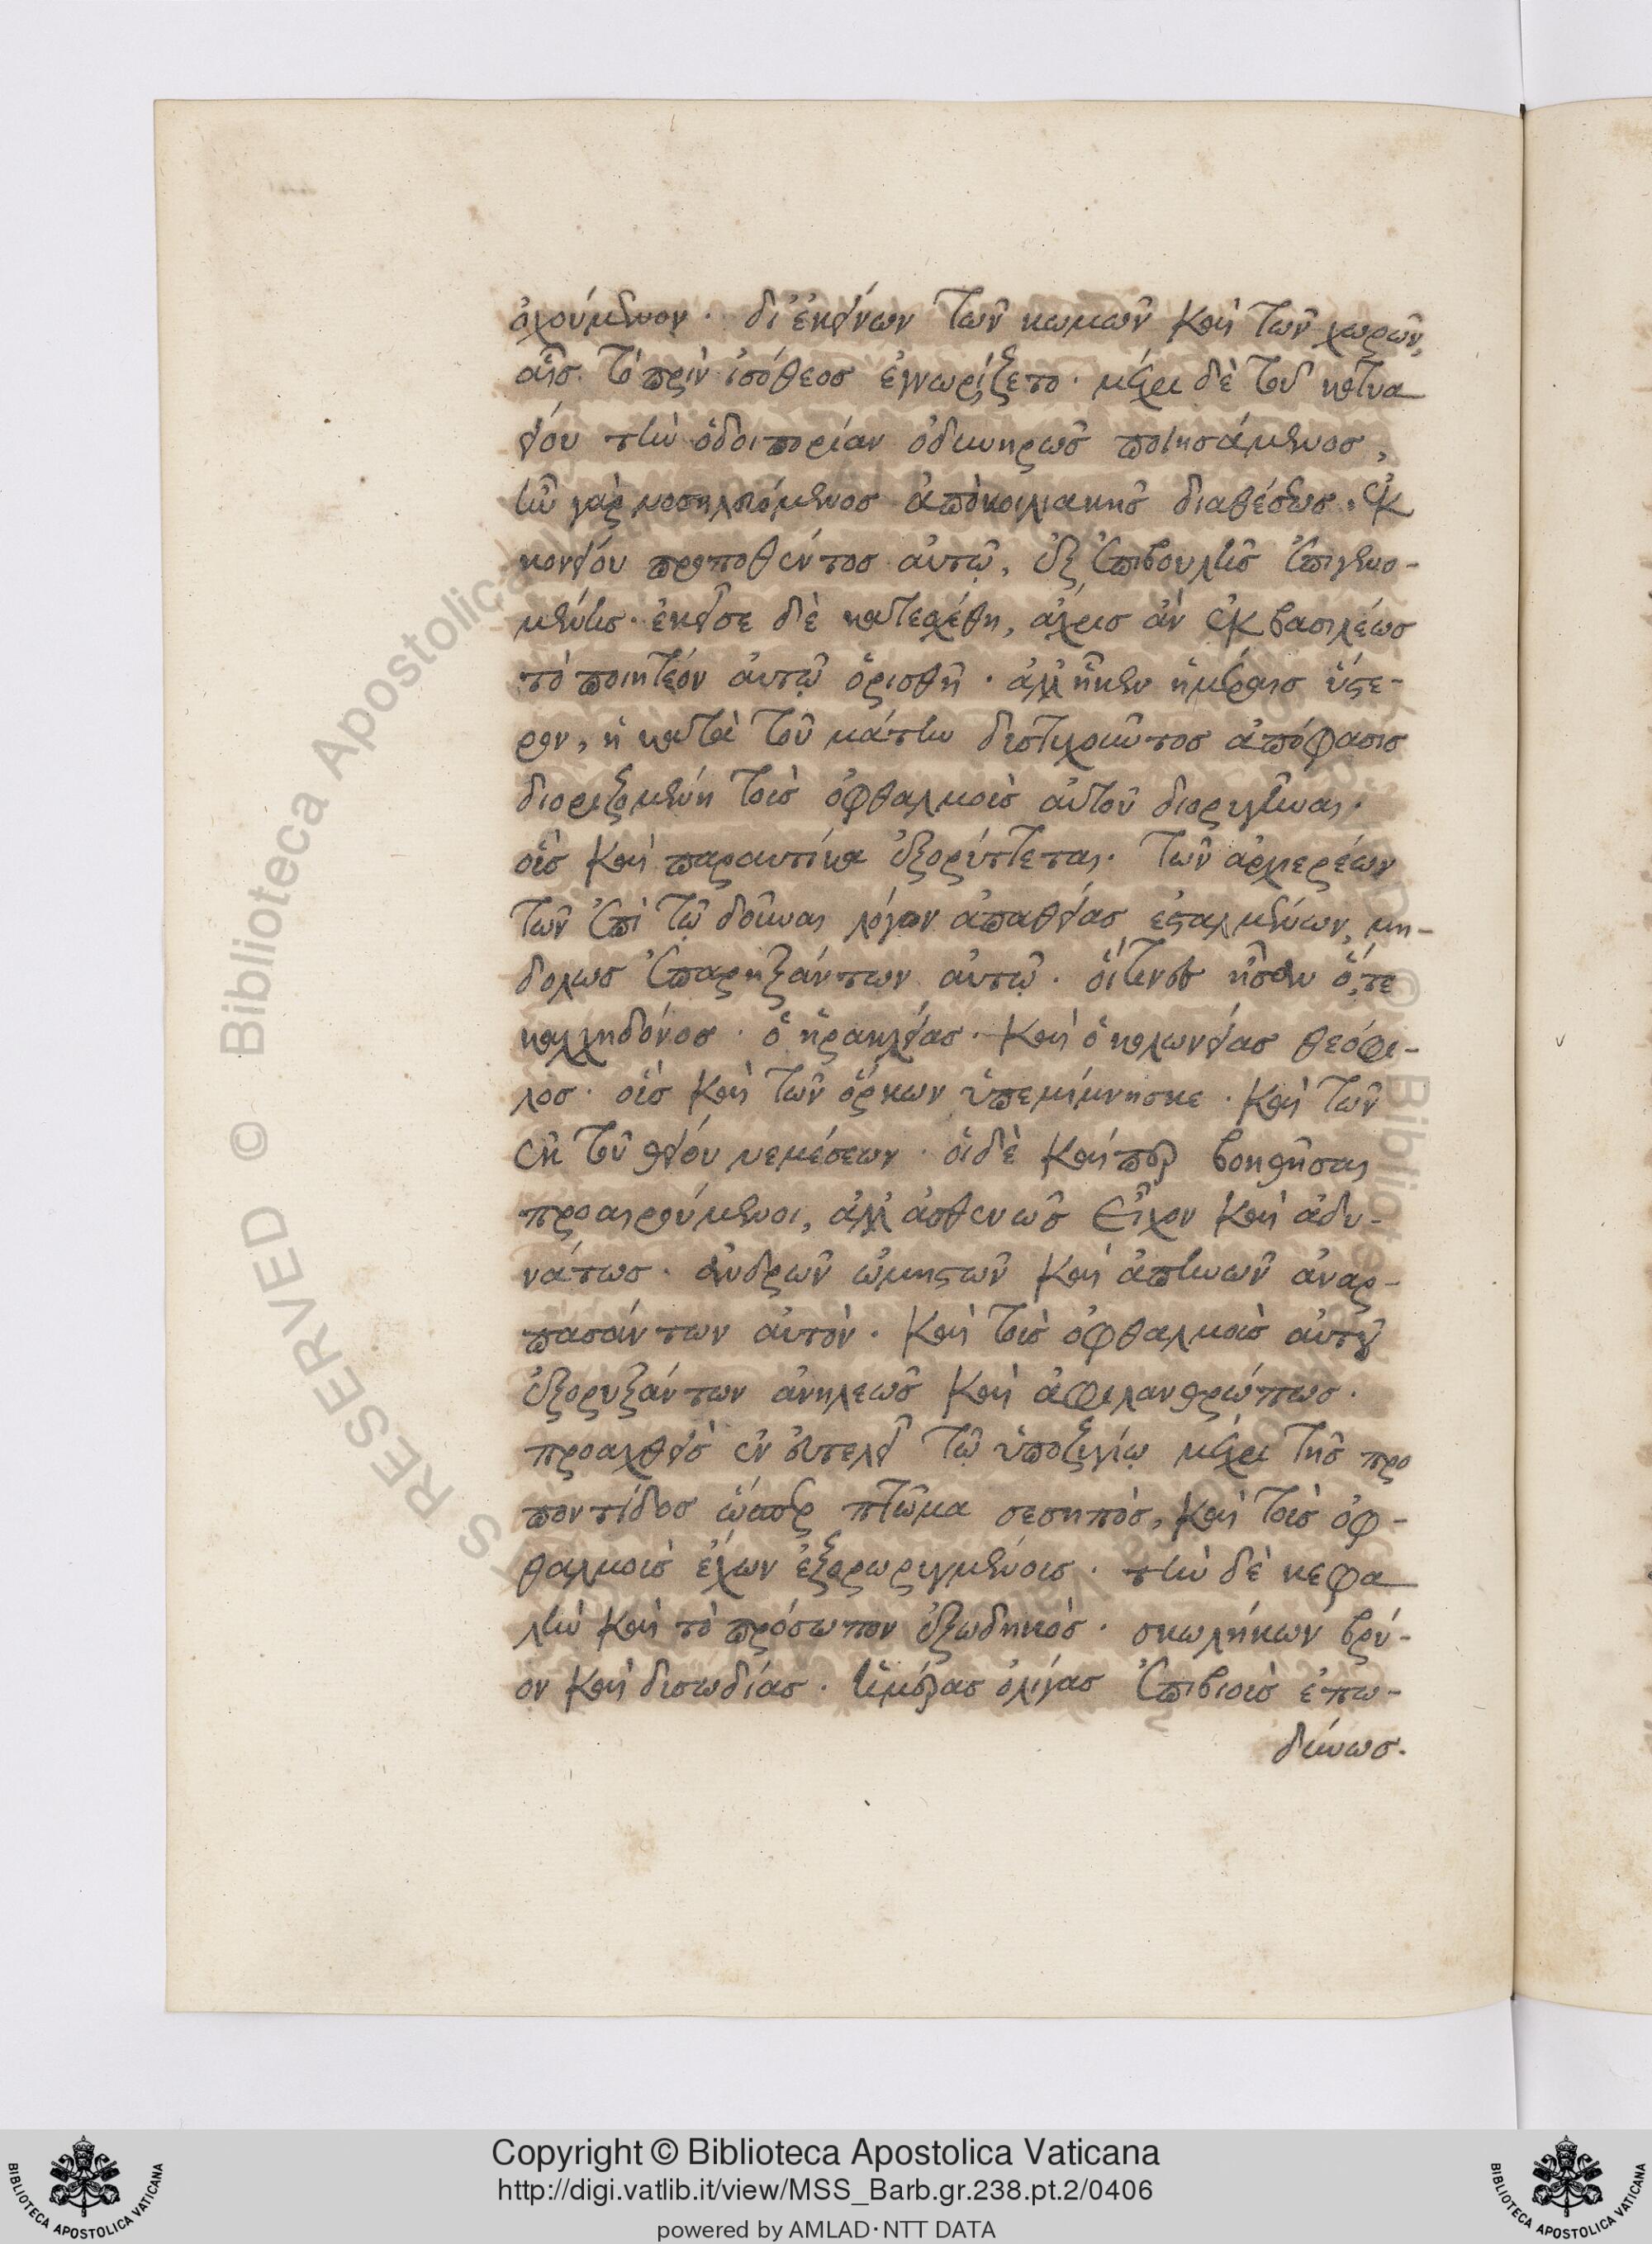 ὀχούμενον. δι ἐκείνων τῶν κωμῶν καὶ τῶν χωρῶν,
αἷς τὸ πρὶν ἰσόθεος ἐγνωρίζετο. μέχρι δὲ τοῦ κοτυα
είου τὴν ὁδοιπορίαν ὀδυνηρῶς ποιησάμενος,
ἦν γὰρ νοσηλευόμενος ἀπὸ κοιλιακῆς διαθέσεως. ἐκ
κονείου προποθέντος αὐτῷ, ἐξ ἐπιβουλῆς ἐπιγενο-
μένης. ἐκεῖσε δὲ κατεσχέθη, ἄχρις ἂν ἐκ βασιλέως
τὸ ποιητέον αὐτῷ ὁρισθῇ. ἀλλ ἧκεν ἡμέραις ὕστε-
ρον, ἡ κατὰ τοῦ μάτην δυστυχοῦντος ἀπόφασις
διοριζομένη τοὺς ὀφθαλμοὺς αὐτοῦ διορυγῆναι.
οὓς καὶ παραυτίκα ἐξορύττεται. τῶν ἀρχιερέων
τῶν ἐπὶ τῷ δοῦναι λόγον ἀπαθείας ἐσταλμένων, μη-
δολως ἐπαρηξάντων αὐτῷ. οἵτινες ἦσαν ὅ, τε
καλχηδόνος. ὁ ἡρακλείας. καὶ ὁ κολωνείας θεόφι-
λος. οὓς καὶ τῶν ὅρκων ὑπεμίμνησκε. καὶ τῶν
ἐκ τοῦ θείου νεμέσεων. οἱ δὲ καίπερ βοηθῆσαι
προαιρούμενοι, ἀλλ ἀσθενῶς εἶχον καὶ ἀδυ-
νάτως. ἀνδρῶν ὠμηστῶν καὶ ἀπηνῶν ἀναρ-
πασάντων αὐτὸν. καὶ τοὺς ὀφθαλμοὺς αὐτοῦ
ἐξορυξάντων ἀνηλεῶς καὶ ἀφιλανθρώπως.
προαχθεὶς ἐν εὐτελεῖ τῷ ὑποζυγίῳ μέχρι τῆς προ
ποντίδος ὥσπερ πτῶμα σεσηπὸς, καὶ τοὺς ὀφ-
θαλμοὺς ἔχων ἐξορωρυγμένους. τὴν δὲ κεφα
λὴν καὶ τὸ πρόσωπον ἐξωδηκὸς. σκωλήκων βρύ-
ον καὶ δυσωδίας. ἡμέρας ὀλίγας ἐπιβιοὺς ἐπω-
δύνως.
Copyright © Biblioteca Apostolica Vaticana
http://digi.vatlib.it/view/MSS_Barb.gr.238.pt.2/0406
powered by AMLAD·NTT DATA